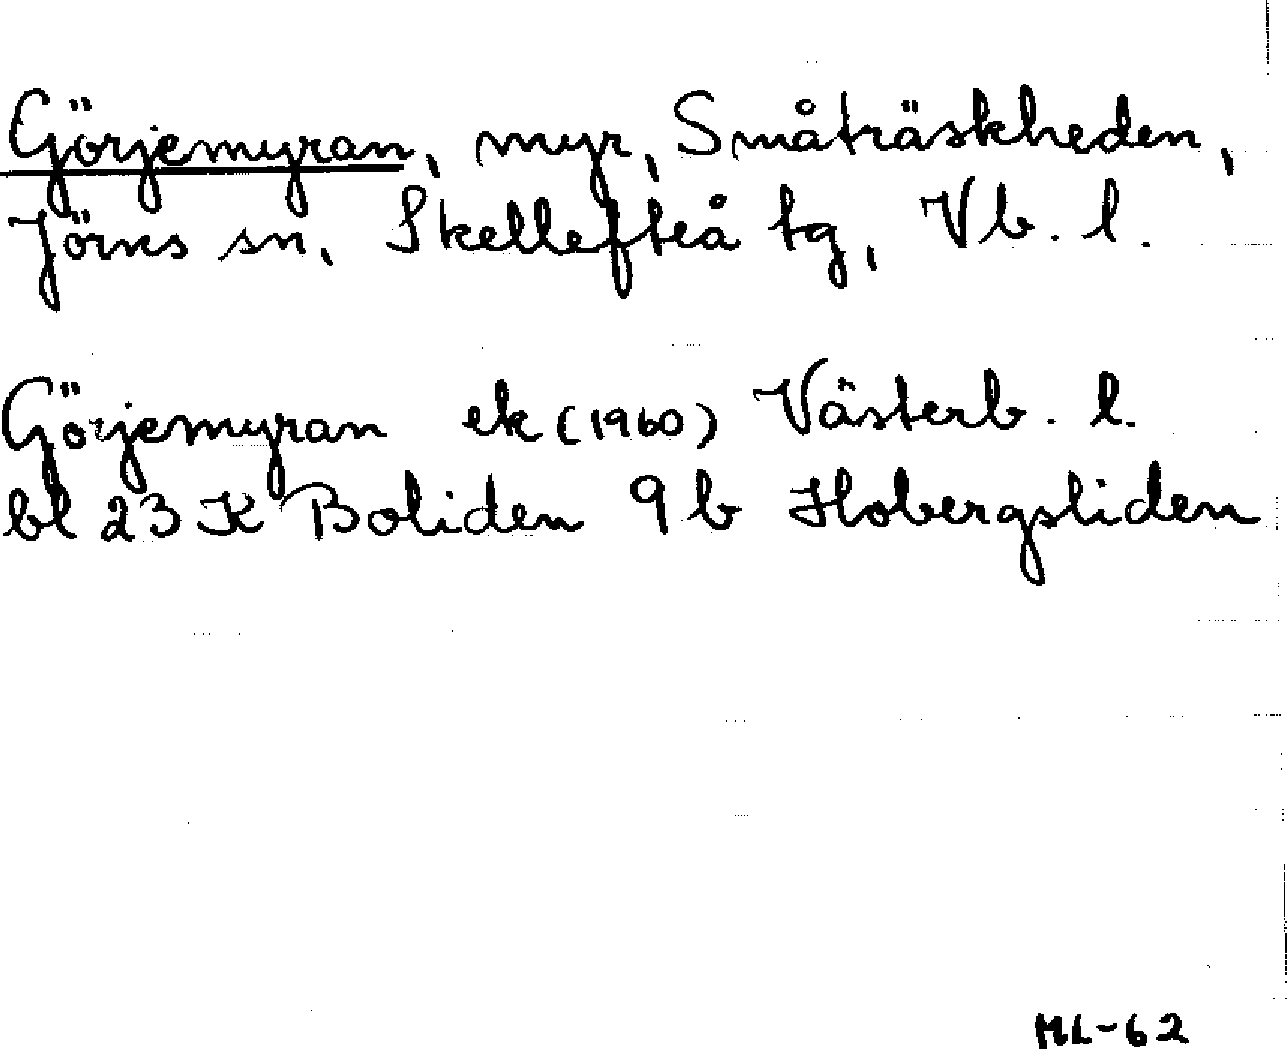 Görjemyran, myr, Småträskheden,
Jörns sn, Skellefteå tg, Vb. l.
Görjemyran ek (1960) Västerb. l.
bl 23 K Boliden 9 b Hobergsliden
ML-62